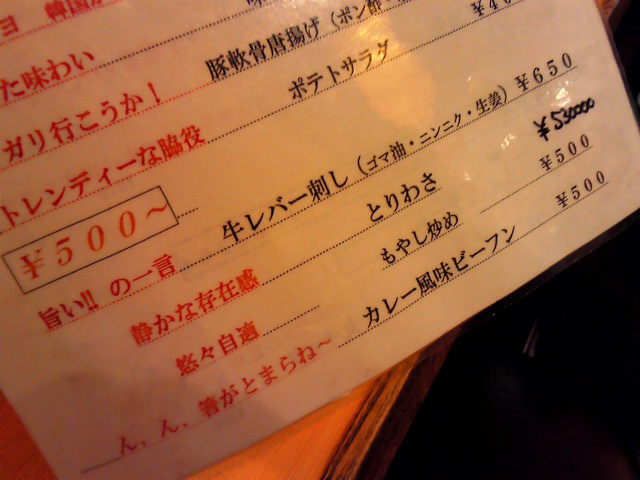 た味わい
ガリ行こうか！ 豚軟骨唐揚げ（ポン酢
トレンディーな脇役 ポテトサラダ ¥4
¥500〜
旨い!! の一言 牛レバー刺し（ゴマ油・ニンニク・生姜）¥650
静かな存在感 とりわさ ¥530000
悠々自適 もやし炒め ¥500
ん、ん、箸がとまらね〜 カレー風味ビーフン ¥500